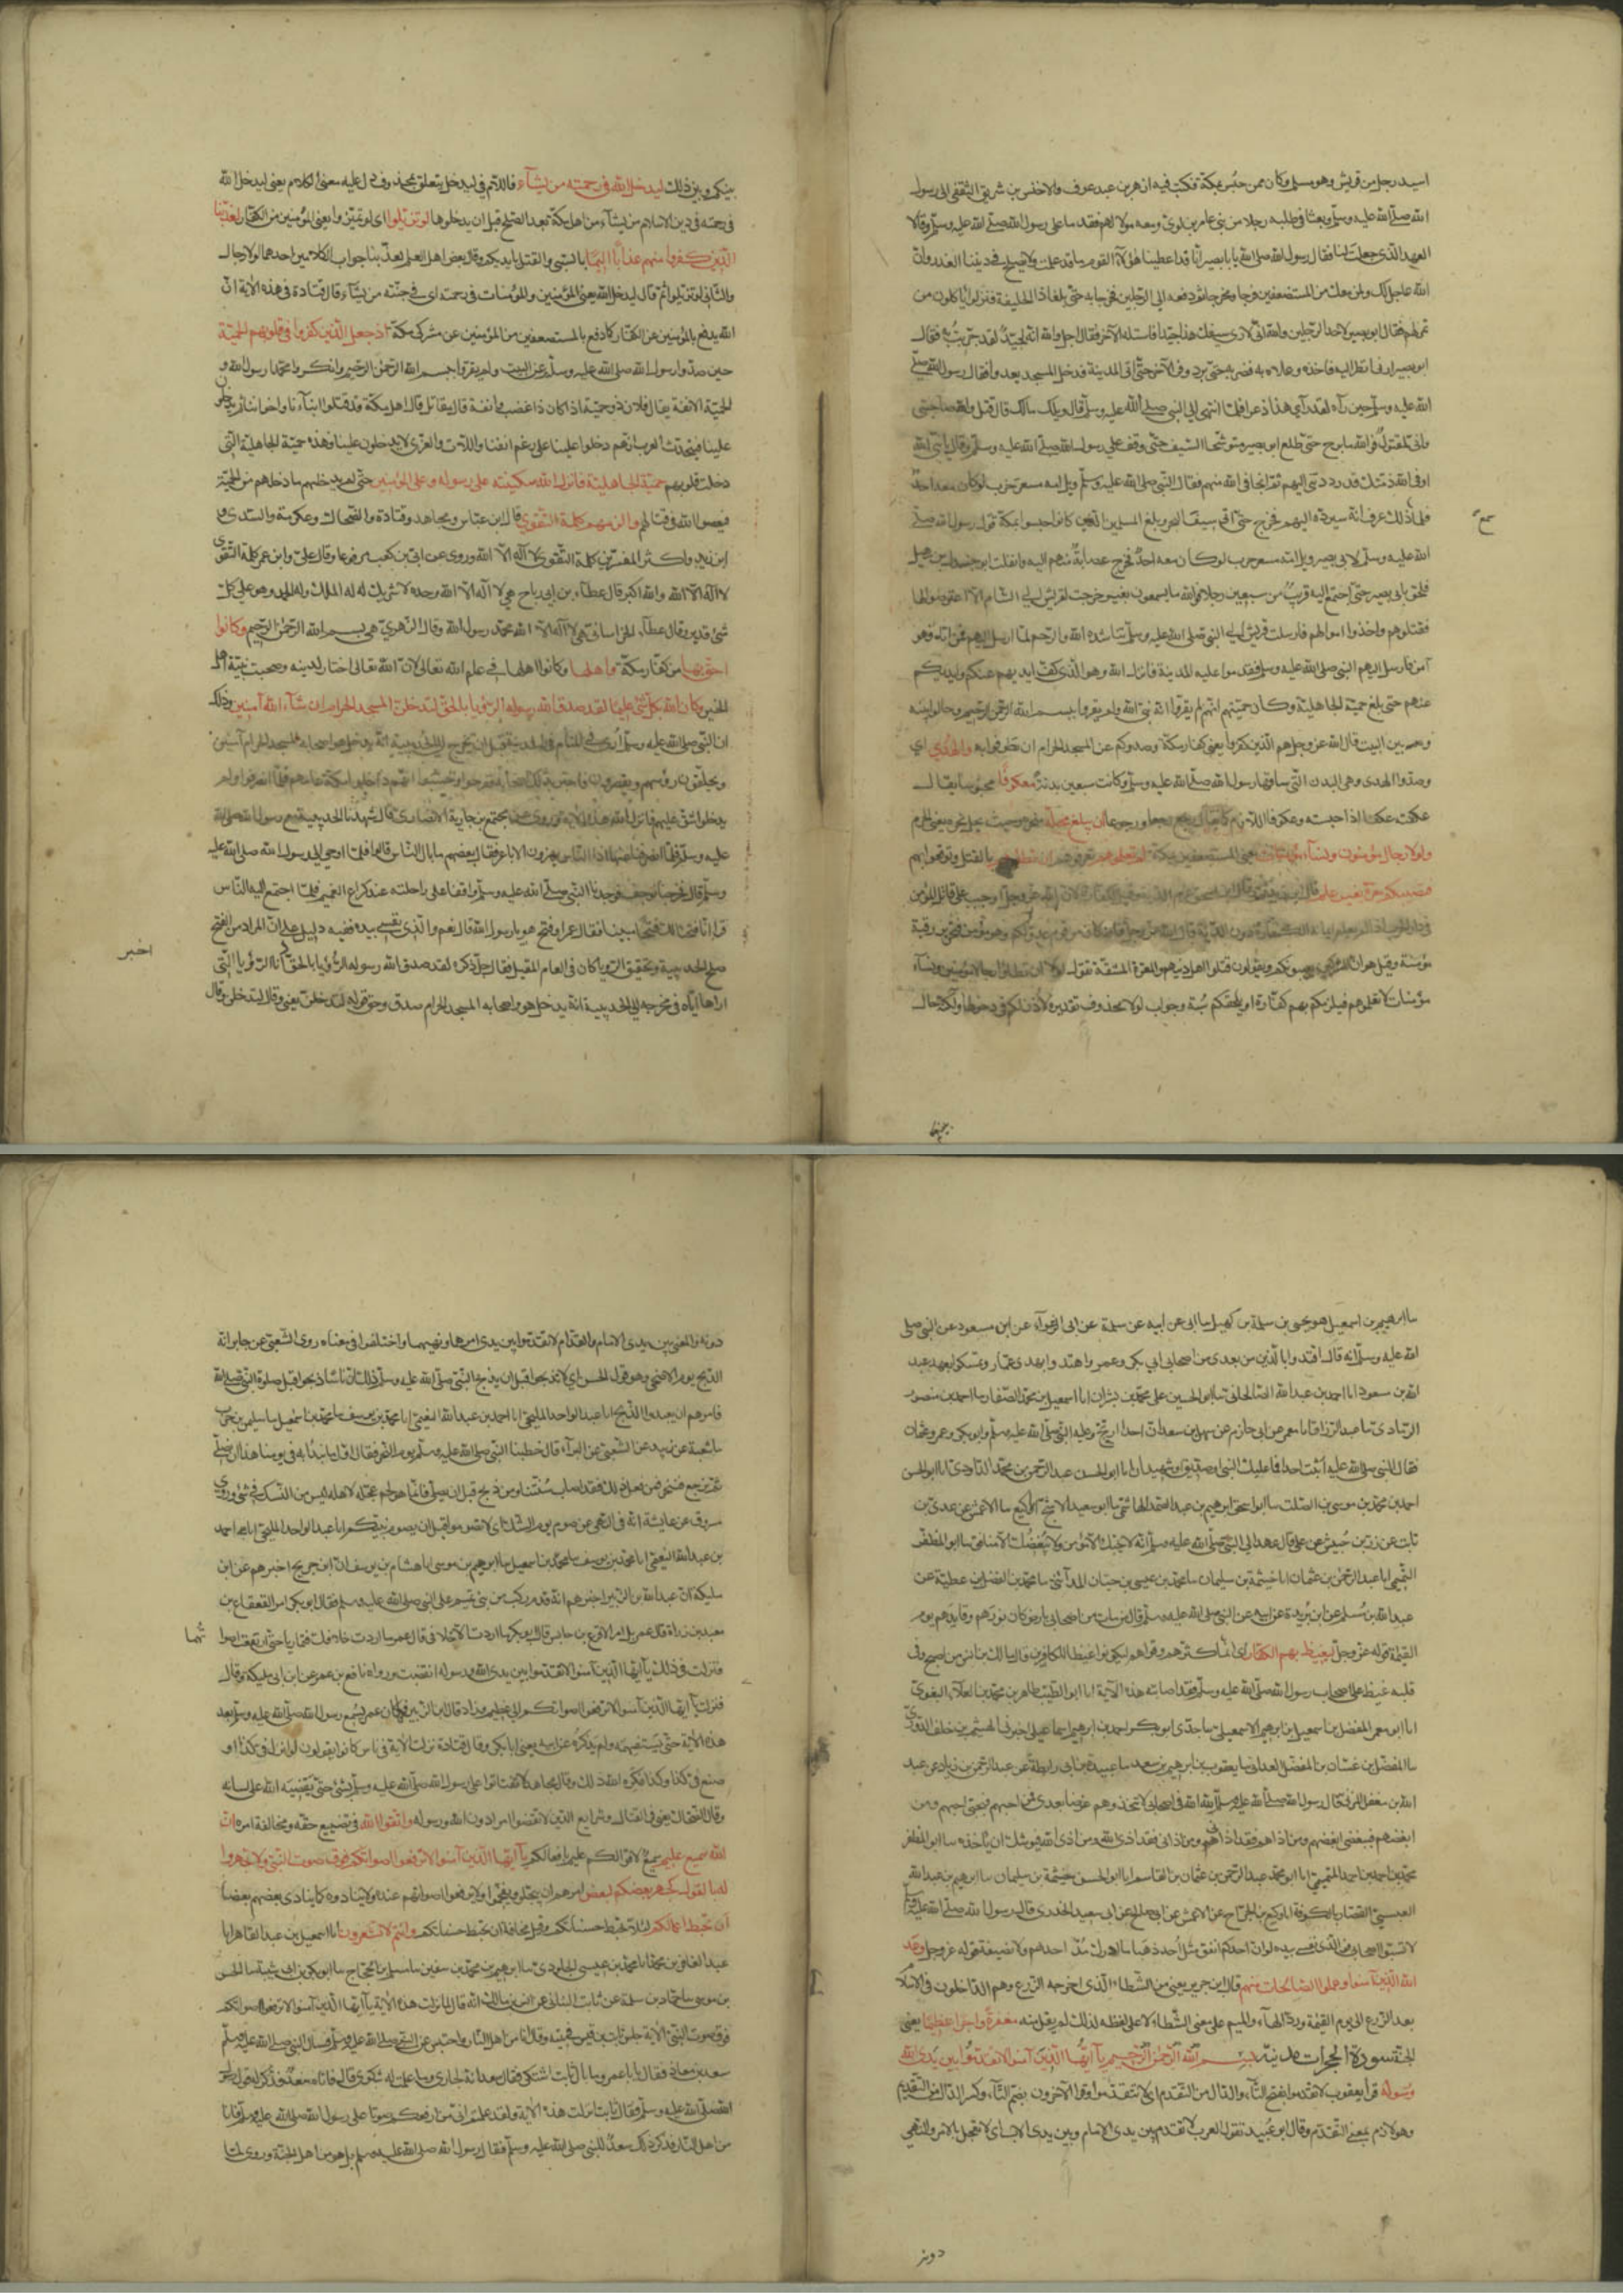 اسيد رجل من قريش وهو مسلم وكان ممن حبس بمكة فكتب فيه ازهر بن عبد عوف والاخنس بن شريق الثقفى الى رسول
الله صلى الله عليه وسلم وبعثا فى طلبه رجلا من بنى عامر بن لوى ومعه مولى لهم فقدما على رسول الله صلى الله عليه وسلم وقالا
العهد الذى جعلت لنا فقال رسول الله صلى الله يا با بصير انا قد اعطينا هؤلاء القوم ما قد علمت ولا يصلح فى ديننا الغدر وان
الله جاعل لك ولمن معك من المستضعفين فرجا ومخرجا ثم دفعه الى الرجلين فخرجا به حتى بلغا ذا الحليفة فنزلوا ياكلون من
تمر لهم فقال ابو بصير لاحد الرجلين والله انى لارى سيفك هذا جيدا فاستله الآخر فقال اجل والله انه لجيد لقد جربت به فقال
ابو بصير ارنى انظر اليه فاخذه وعلاه به فضربه حتى برد وفر الآخر حتى اتى المدينة فدخل المسجد يعدو فقال رسول الله صلى
الله عليه وسلم حين رآه لقد رآى هذا ذعرا فلما انتهى الى النبى صلى الله عليه وسلم قال ويلك ما لك قال قتل والله صاحبى
وانى لمقتول فوالله ما برح حتى طلع ابو بصير متوشحا السيف حتى وقف على رسول الله صلى الله عليه وسلم وقال يا نبى الله
اوفى الله ذمتك قد رددتنى اليهم ثم انجانى الله منهم فقال النبى صلى الله عليه وسلم ويل امه مسعر حرب لو كان معه احد
فلما ذلك عرف انه سيرده اليهم فخرج حتى اتى سيف البحر وبلغ المسلمين الذين كانوا حبسوا بمكة قول رسول الله صلى
سمع
الله عليه وسلم لابى بصير ويل امه مسعر حرب لو كان معه احد فخرج عصابة منهم اليه وانفلت ابو جندل بن سهيل
فلحق بابى بصير حتى اجتمع اليه قريب من سبعين رجلا فوالله ما يسمعون بعير خرجت لقريش الى الشام الا اعترضوا لها
فقتلوهم واخذوا اموالهم فارسلت قريش الى النبى صلى الله عليه وسلم تناشده الله والرحم لما ارسل اليهم فمن اتاه فهو
آمن فارسل اليهم النبى صلى الله عليه وسلم فقدموا عليه المدينة فانزل الله وهو الذى كف ايديهم عنكم وايديكم
عنهم حتى بلغ حمية الجاهلية وكان حميتهم انهم لم يقروا انه نبى الله ولم يقروا ببسم الله الرحمن الرحيم وحالوا بينه
وبين البيت قال الله عز وجل هم الذين كفروا يعنى كفار مكة وصدوكم عن المسجد الحرام ان تطوفوا به والهدى اى
وصدوا الهدى وهى البدن التى ساقها رسول الله صلى الله عليه وسلم وكانت سبعين بدنة معكوفا محبوسا يقال
عكفته عكفا اذا حبسته وعكوفا لازم كما يقال رجع رجعا ورجوعا ان يبلغ محله منحره وحيث يحل نحره يعنى الحرم
ولولا رجال مؤمنون ونساء مؤمنات يعنى المستضعفين بمكة لم تعلموهم لم تعرفوهم ان تطئوهم بالقتل وتوقعوا بهم
فتصيبكم معرة بغير علم قال ابن اسحق غرم الدية الكفارة لان الله عز وجل اوجب على قاتل المؤمن
فى دار الحرب اذا لم يعلم ايمانه الكفارة دون الدية قال الله فان كان من قوم عدو لكم وهو مؤمن فتحرير رقبة
مؤمنة وقيل هو ان المشركين يعيبونكم ويقولون قتلوا اهل دينهم والمعرة المشقة تقول لولا ان تطئوا رجالا مؤمنين ونساء
مؤمنات لم تعلموهم فيلزمكم بهم كفارة او يلحقكم سبة وجواب لولا محذوف تقديره لاذن لكم فى دخولها ولكنه حال
بينكم وبين ذلك ليدخل الله فى رحمته من يشاء فاللام فى ليدخل يتعلق بمحذوف دل عليه معنى الكلام يعنى ليدخل الله
فى رحمته فى دين الاسلام من يشاء من اهل مكة بعد الصلح قبل ان يدخلوها لو تزيلوا اى لو تميزوا يعنى المؤمنين من الكفار لعذبنا
الذين كفروا منهم عذابا اليما بالسبى والقتل بايديكم وقال بعض اهل العلم لعذبنا جواب لكلامين احدهما لولا رجال
والثانى لو تزيلوا ثم قال ليدخل الله يعنى المؤمنين والمؤمنات فى رحمته اى فى جنته من يشاء قال قتادة فى هذه الآية ان
الله يدفع بالمؤمنين عن الكفار كما دفع بالمستضعفين من المؤمنين عن مشركى مكة اذ جعل الذين كفروا فى قلوبهم الحمية
حين صدوا رسول الله صلى الله عليه وسلم عن البيت ولم يقروا ببسم الله الرحمن الرحيم وانكروا محمدا رسول الله و
الحمية الانفة يقال فلان ذو حمية اذا كان ذا غضب وانفة قال مقاتل قال اهل مكة قد قتلوا ابناءنا واخواننا ثم يدخلون
علينا فيتحدث العرب انهم دخلوا علينا على رغم انفنا واللات والعزى لا يدخلون علينا فهذه حمية الجاهلية التى
دخلت قلوبهم حمية الجاهلية فانزل الله سكينته على رسوله وعلى المؤمنين حتى لم يدخلهم ما دخلهم من الحمية
فيعصوا الله فى قتالهم والزمهم كلمة التقوى قال ابن عباس ومجاهد وقتادة والضحاك وعكرمة والسدى و
ابن زيد واكثر المفسرين كلمة التقوى لا اله الا الله وروى عن ابى بن كعب مرفوعا وقال على وابن عمر كلمة التقوى
لا اله الا الله والله اكبر قال عطاء بن ابى رباح هى لا اله الا الله وحده لا شريك له له الملك وله الحمد وهو على كل
شئ قدير وقال عطاء الخراسانى هى لا اله الا الله محمد رسول الله وقال الزهرى هى بسم الله الرحمن الرحيم وكانوا
احق بها من كفار مكة واهلها وكانوا اهلها فى علم الله تعالى لان الله تعالى اختار لدينه وصحبة نبيه اهل
الخير وكان الله بكل شئ عليما لقد صدق الله رسوله الرؤيا بالحق لتدخلن المسجد الحرام ان شاء الله آمنين وذلك
ان النبى صلى الله عليه وسلم ارى فى المنام فى المدينة قبل ان يخرج الى الحديبية انه يدخل هو واصحابه المسجد الحرام آمنين
ويحلقون رؤسهم ويقصرون فاخبر بذلك اصحابه ففرحوا وحسبوا انهم داخلوا مكة عامهم فلما انصرفوا ولم
يدخلوا شق عليهم فانزل الله هذه الآية وروى عن مجمع بن جارية الانصارى قال شهدنا الحديبية مع رسول الله صلى الله
عليه وسلم فلما انصرفنا عنها اذا الناس يهزون الاباعر فقال بعضهم ما بال الناس قالوا فلما اوحى الى رسول الله صلى الله عليه
وسلم قال فخرجنا نوجف فوجدنا النبى صلى الله عليه وسلم واقفا على راحلته عند كراع الغميم فلما اجتمع اليه الناس
قرا انا فتحنا لك فتحا مبينا فقال عمر او فتح هو يا رسول الله قال نعم والذى نفسى بيده ففيه دليل على ان المراد من الفتح
صلح الحديبية وتحقيق الرؤيا كان فى العام المقبل فقال جل ذكره لقد صدق الله رسوله الرؤيا بالحق انها الرؤيا التى
اخبر
اراها اياه فى مخرجه الى الحديبية انه يدخل هو واصحابه المسجد الحرام صدق وحق قوله لتدخلن يعنى وقال لتدخلن وقال
سا ابرهيم بن اسمعيل هو يحيى بن سلمة بن كهيل سا ابى عن ابيه عن سلمة عن ابى الزعراء عن ابن مسعود عن النبى صلى
الله عليه وسلم انه قال اقتدوا بالذين من بعدى من اصحابى ابى بكر وعمر واهتدوا بهدى عمار وتمسكوا بعهد عبد
الله بن مسعود انا احمد بن عبد الله الصالحانى سا ابو الحسين على بن محمد بن بشران انا اسمعيل بن محمد الصفار سا احمد بن منصور
الرمادى سا عبد الرزاق انا معمر عن ابى حازم عن سهل بن سعد ان احدا ارتج وعليه النبى صلى الله عليه وسلم وابو بكر وعمر وعثمان
فقال النبى صلى الله عليه اثبت احد فما عليك الا نبى او صديق او شهيدان انا ابو الحسن عبد الرحمن بن محمد الداودى انا ابو الحسن
احمد بن محمد بن موسى بن الصلت سا ابو اسحق ابرهيم بن عبد الصمد الهاشمى سا ابو سعيد الاشج سا وكيع سا الاعمش عن عدى بن
ثابت عن زر بن حبيش عن على قال عهد الى النبى صلى الله عليه وسلم انه لا يحبك الا مؤمن ولا يبغضك الا منافق سا ابو المظفر
التميمى انا عبد الرحمن بن عثمان انا خيثمة بن سليمان سا محمد بن عيسى بن حيان المدائنى سا محمد بن الفضل بن عطية عن
عبد الله بن مسلم عن ابن بريدة عن ابيه عن النبى صلى الله عليه وسلم قال من مات من اصحابى بارض كان نورهم وقايدهم يوم
القيمة قوله عز وجل ليغيظ بهم الكفار اى انما كثرهم وقواهم ليكونوا غيظا للكافرين قال مالك بن انس من اصبح وفى
قلبه غيظ على اصحاب رسول الله صلى الله عليه وسلم فقد اصابته هذه الآية انا ابو الطيب طاهر بن محمد بن العلاء البغوى
انا ابو معمر المفضل بن اسمعيل بن ابرهيم الاسمعيلى سا جدى ابو بكر احمد بن ابرهيم الاسماعيلى اخبرنى الهيثم بن خلف الدورى
سا المفضل بن غسان بن المفضل العلائى سا يعقوب بن ابرهيم بن سعد سا عبيدة بن ابى رابطة عن عبد الرحمن بن زياد عن عبد
الله بن مغفل المزنى قال رسول الله صلى الله عليه وسلم الله الله فى اصحابى لا تتخذوهم غرضا بعدى فمن احبهم فبحبى احبهم ومن
ابغضهم فببغضى ابغضهم ومن اذاهم فقد اذانى ومن اذانى فقد اذى الله ومن اذى الله فيوشك ان ياخذه سا ابو المظفر
محمد بن احمد بن حامد التميمى انا ابو محمد عبد الرحمن بن عثمان بن القاسم انا ابو الحسن خيثمة بن سليمان سا ابرهيم بن عبد الله
العبسى القصار بالكوفة انا وكيع بن الجراح عن الاعمش عن ابى صالح عن ابى سعيد الخدرى قال رسول الله صلى الله عليه وسلم
لا تسبوا اصحابى فوالذى نفسى بيده لو ان احدكم انفق مثل احد ذهبا ما ادرك مد احدهم ولا نصيفه قوله عز وجل وعد
الله الذين آمنوا وعملوا الصالحات منهم قال ابن جرير يعنى من الشطاء الذى اخرجه الزرع وهم الداخلون فى الاسلام
بعد الزرع الى يوم القيمة ورد الهاء والميم على معنى الشطاء لا على لفظه لذلك لم يقل منه مغفرة واجرا عظيما يعنى
الجنة سورة الحجرات مدنية بسم الله الرحمن الرحيم يا ايها الذين آمنوا لا تقدموا بين يدى الله
ورسوله قرأ يعقوب لا تقدموا بفتح التاء والدال من التقدم اى لا تتقدموا وقرا الآخرون بضم التاء وكسر الدال من التقديم
وهو لازم بمعنى التقدم وقال ابو عبيد تقول العرب لا تقدم بين يدى الامام وبين يدى الاب اى لا تعجل بالامر والنهى
دونه
دونه والمعنى بين يدى الامام والقدام لا تقدموا بين يدى امرهما ونهيهما واختلفوا فى معناه روى الشعبى عن جابر انه
الذبح يوم الاضحى وهو قول الحسن اى لا تذبحوا قبل ان يذبح النبى صلى الله عليه وسلم وذلك ان ناسا ذبحوا قبل صلوة النبى صلى الله
فامرهم ان يعيدوا الذبح انا عبد الواحد المليحى انا احمد بن عبد الله النعيمى انا محمد بن يوسف سا محمد بن اسمعيل سا سليمن بن حرب
سا شعبة عن زبيد عن الشعبى عن البراء قال خطبنا النبى صلى الله عليه وسلم يوم النحر فقال ان اول ما نبدأ به فى يومنا هذا ان نصلى
ثم نرجع فننحر فمن فعل ذلك فقد اصاب سنتنا ومن ذبح قبل ان يصلى فانما هو لحم عجله لاهله ليس من النسك فى شئ وروى
مسروق عن عايشة انه فى النهى عن صوم يوم الشك اى لا تصوموا قبل ان يصوم نبيكم انا عبد الواحد المليحى انا احمد
بن عبد الله النعيمى انا محمد بن يوسف سا محمد بن اسمعيل سا ابرهيم بن موسى انا هشام بن يوسف ان ابن جريج اخبرهم عن ابن
مليكة ان عبد الله بن الزبير اخبرهم انه قدم ركب من بنى تميم على النبى صلى الله عليه وسلم فقال ابو بكر امر القعقاع بن
معبد بن زرارة قال عمر بل امر الاقرع بن حابس قال ابو بكر ما اردت الا خلافى قال عمر ما اردت خلافك فتماريا حتى ارتفعت اصوا
تهما
فنزلت فى ذلك يا ايها الذين آمنوا لا تقدموا بين يدى الله ورسوله انقضت ورواه نافع بن عمر عن ابن ابى مليكة وقال
فنزلت يا ايها الذين آمنوا لا ترفعوا اصواتكم الى عظيم وزاد قال ابن الزبير فما كان عمر يسمع رسول الله صلى الله عليه وسلم بعد
هذه الآية حتى يستفهمه ولم يذكره عن ابيه يعنى ابا بكر وقال قتادة نزلت الآية فى ناس كانوا يقولون لو انزل فى كذا او
صنع فى كذا وكذا فكره الله ذلك وقال مجاهد لا تفتاتوا على رسول الله صلى الله عليه وسلم بشئ حتى يقضيه الله على لسانه
وقال الضحاك يعنى فى القتال وشرايع الدين لا تقضوا امرا دون الله ورسوله واتقوا الله فى تضييع حقه ومخالفة امره ان
الله سميع عليم سميع لاقوالكم عليم بافعالكم يا ايها الذين آمنوا لا ترفعوا اصواتكم فوق صوت النبى ولا تجهروا
له بالقول كجهر بعضكم لبعض امرهم ان يبجلوه ويفخموه ولا يرفعوا اصواتهم عنده ولا ينادوه كما ينادى بعضهم بعضا
ان تحبط اعمالكم لئلا تحبط حسناتكم وقيل مخافة ان تحبط حسناتكم وانتم لا تشعرون انا اسمعيل بن عبد القاهر انا
عبد الغافر بن محمد انا محمد بن عيسى الجلودى سا ابرهيم بن محمد بن سفين سا مسلم بن الحجاج سا ابو بكر بن ابى شيبة سا الحسن
بن موسى سا حماد بن سلمة عن ثابت البنانى عن انس بن مالك انه قال لما نزلت هذه الآية يا ايها الذين آمنوا لا ترفعوا اصواتكم
فوق صوت النبى الآية جلس ثابت بن قيس فى بيته وقال انا من اهل النار واحتبس عن النبى صلى الله عليه وسلم فسال النبى صلى الله عليه وسلم
سعد بن معاذ فقال يا با عمرو ما بال ثابت اشتكى فقال سعد انه لجارى وما علمت له شكوى قال فاتاه سعد فذكر له قول رسول
الله صلى الله عليه وسلم فقال ثابت انزلت هذه الآية ولقد علمتم انى من ارفعكم صوتا على رسول الله صلى الله عليه وسلم فانا
من اهل النار فذكر ذلك سعد للنبى صلى الله عليه وسلم فقال رسول الله صلى الله عليه وسلم بل هو من اهل الجنة وروى لما